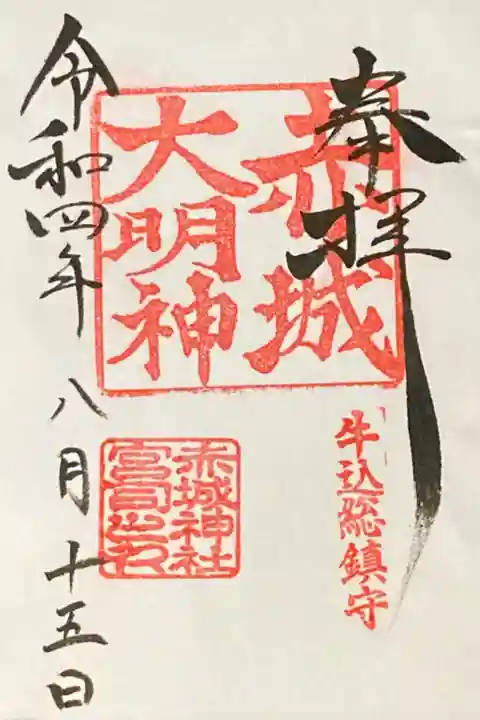 奉拝
赤城
大明神
牛込総鎮守
赤城神社
宮司之印
令和四年八月十五日